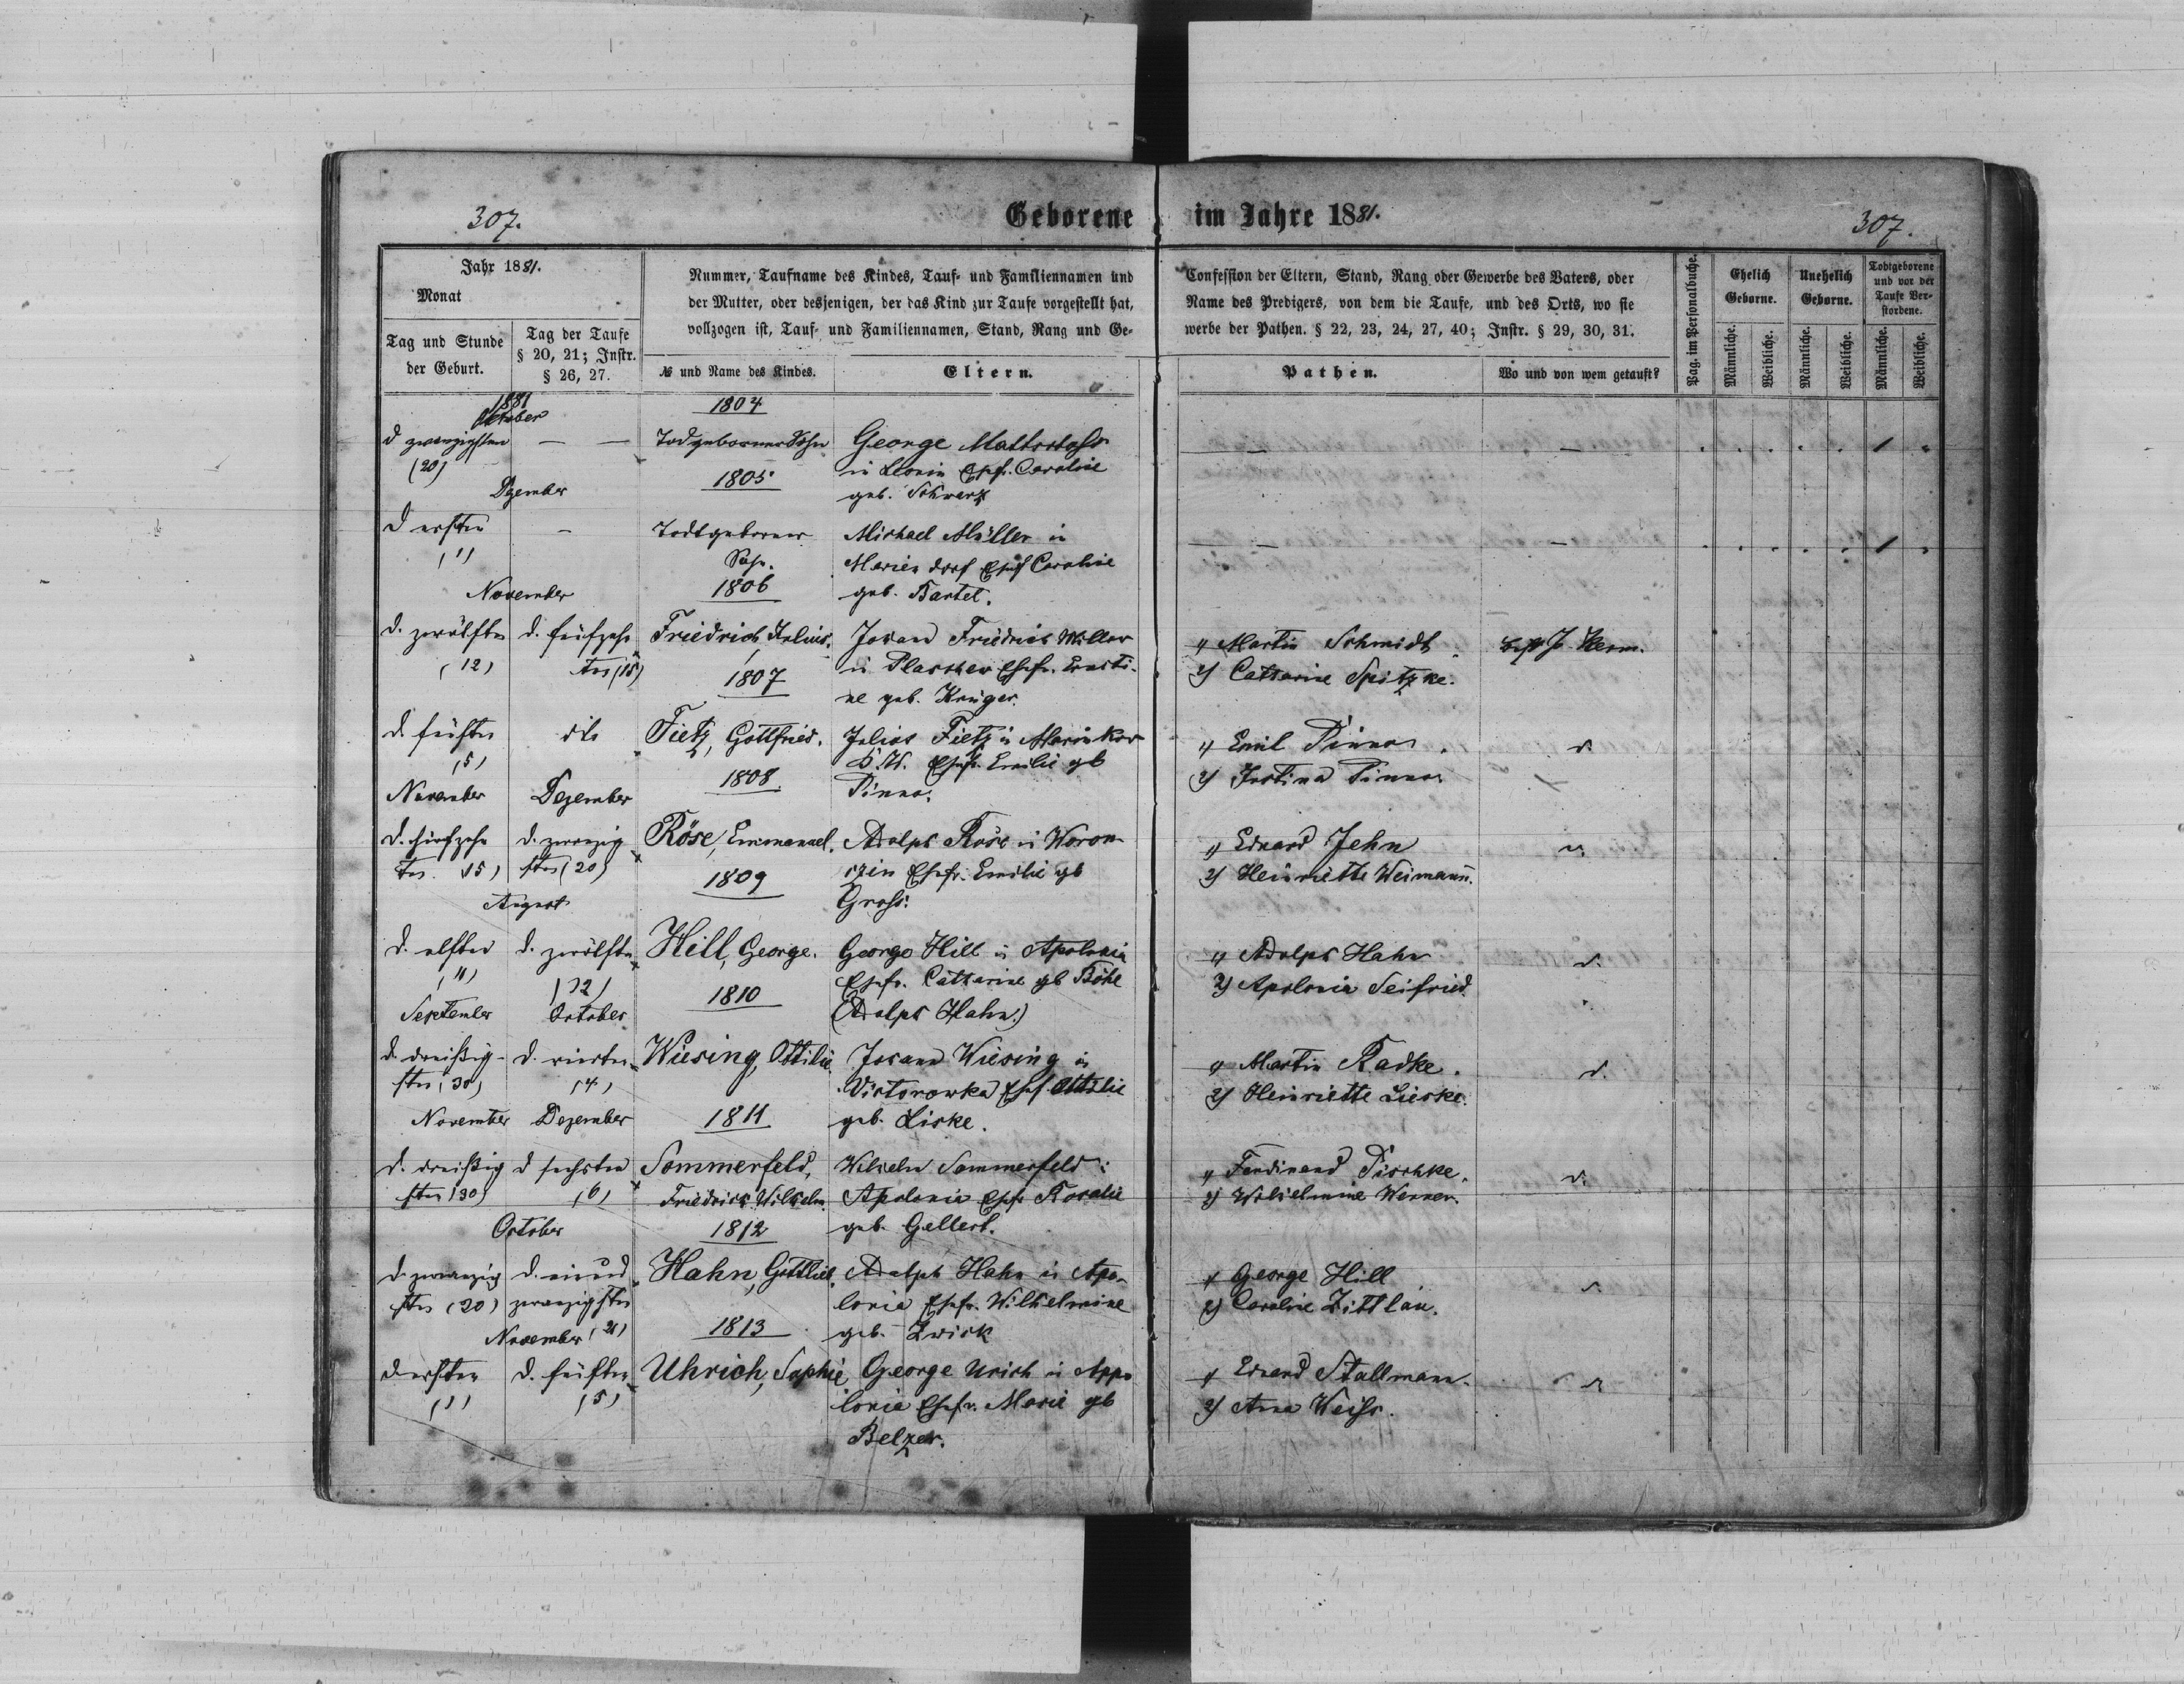 307.
Geborene im Jahre 1881.
307.
Jahr 1881.
Monat
Tag und Stunde
der Geburt.
Tag der Taufe
§ 20, 21; Instr.
§ 26, 27.
Nummer, Taufname des Kindes, Tauf- und Familiennamen und
der Mutter, oder desjenigen, der das Kind zur Taufe vorgestellt hat,
vollzogen ist, Tauf- und Familiennamen, Stand, Rang und Ge-
№ und Name des Kindes.
Eltern.
Confession der Eltern, Stand, Rang oder Gewerbe des Vaters, oder
Name des Predigers, von dem die Taufe, und des Orts, wo sie
werbe der Pathen. § 22, 23, 24, 27, 40; Instr. § 29, 30, 31.
Pathen.
Wo und von wem getauft?
Pag. im Personalbuche.
Ehelich
Geborne.
Unehelich
Geborne.
Todtgeborene
und vor der
Taufe Ver-
storbene.
Männliche.
Weibliche.
Männliche.
Weibliche.
Männliche.
Weibliche.
1881
October
1804
d zwanzigsten
(20)
Todgeborner Sohn
George
in Ehefr. Caroline
geb. Schwarz
1
Dezember
1805
d ersten
(1)
Todtgeborner
Sohn.
Michael Müller in
Mariendorf Ehefr Caroline
geb. Bartel.
1
November
1806
d. zwölften
(12)
d. fünfzehn
ten (15)
Friedrich, Julius.
Johann Friedrich
in Ehefr. Ernsti-
ne geb. Krüger.
1) Martin Schmidt.
2) Catharine Spitzke.
J. Herm.
1807
d. fünften
(5)
Fietz, Gottfried.
Julius Fietz in
Ehefr. Emilie gb
Pinno.
1) Emil Pinno.
2) Justina Pinno.
d.
November
Dezember
1808
d. fünfzehn
ten 15)
d. zwanzig
sten (20)
Röse, Emmanuel.
Adolph Röse in Woron-
czin Ehefr. Emilie gb
Gross.
1) Eduard Jehn
2) Henriette Weimann.
August
1809
d. elften
(11)
d. zwölften
(12)
Hill, George.
George Hill in Apolonia
Ehefr. Catharine gb Böhl
(Adolph Hahn.)
1) Adolph Hahn
2) Apolonia Seifried.
d.
September
October
1810
d. dreißig-
sten (30)
d. vierten
(4)
Wiesing, Ottilie.
Johann Wiesing in
Victorowka Ehef. Ottilie
geb. Liske.
1) Martin Radke.
2) Heinriette Lieske.
d.
November
Dezember
1811
d. dreißig
sten (30)
d sechsten
(6)
Sommerfeld,
Friedrich Wilhelm.
Wilhelm Sommerfeld in
Apolonia Ehefr Rosalie
geb. Gellert.
1) Ferdinand Pischke.
2) Wilhelmine Werner.
d.
October
1812
d. zwanzig
sten (20)
d. einund
zwanzigsten
(21)
Hahn, Gottlieb.
Adolph Hahn in Apo-
lonia Ehefr. Wilhelmine
geb. Zwick
1) George Hill
2) Caroline Zittlau.
November
1813
d ersten
(1)
d. fünften
(5)
Uhrich, Sophie
George Urich in Appo
lonia Ehefr. Marie gb
Belzer.
1) Eduard Stallmann.
2) Anna Weiss.